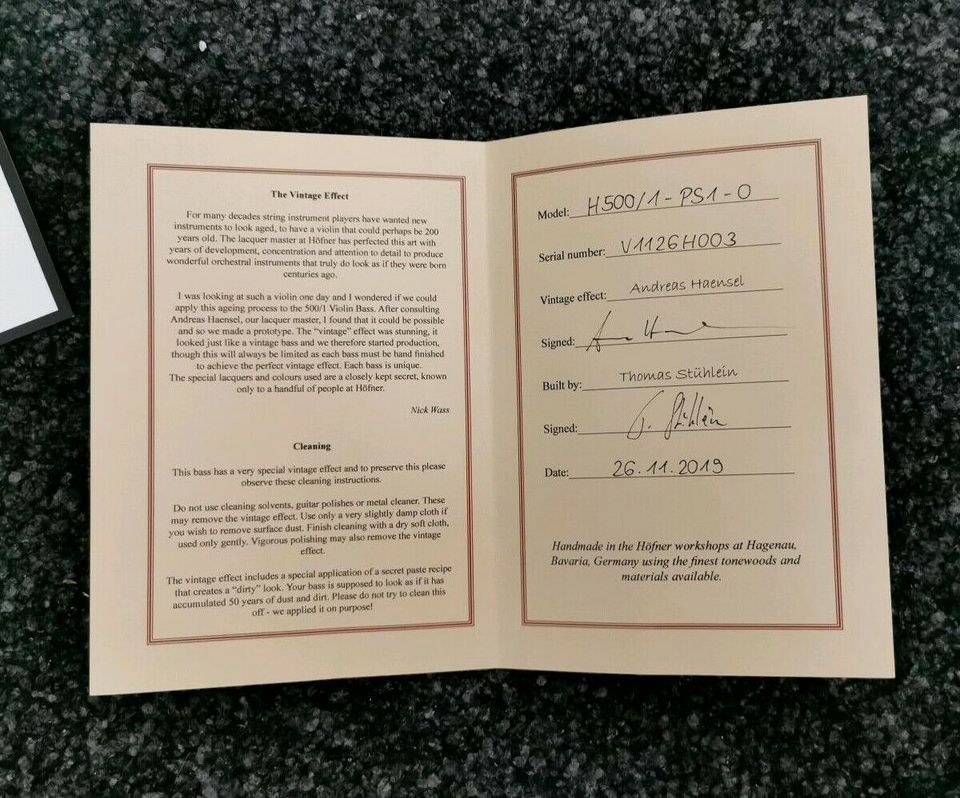 The Vintage Effect
For many decades string instrument players have wanted new
instruments to look aged, to have a violin that could perhaps be 200
years old. The lacquer master at Höfner has perfected this art with
years of development, concentration and attention to detail to produce
wonderful orchestral instruments that truly do look as if they were born
centuries ago.
I was looking at such a violin one day and I wondered if we could
apply this ageing process to the 500/1 Violin Bass. After consulting
Andreas Haensel, our lacquer master, I found that it could be possible
and so we made a prototype. The "vintage" effect was stunning, it
looked just like a vintage bass and we therefore started production,
though this will always be limited as each bass must be hand finished
to achieve the perfect vintage effect. Each bass is unique.
The special lacquers and colours used are a closely kept secret, known
only to a handful of people at Höfner.
Nick Wass
Cleaning
This bass has a very special vintage effect and to preserve this please
observe these cleaning instructions.
Do not use cleaning solvents, guitar polishes or metal cleaner. These
may remove the vintage effect. Use only a very slightly damp cloth if
you wish to remove surface dust. Finish cleaning with a dry soft cloth,
used only gently. Vigorous polishing may also remove the vintage
effect.
The vintage effect includes a special application of a secret paste recipe
that creates a "dirty" look. Your bass is supposed to look as if it has
accumulated 50 years of dust and dirt. Please do not try to clean this
off - we applied it on purpose!
Model: H500/1-PS1-0
Serial number: V1126H003
Vintage effect: Andreas Haensel
Signed:
Built by: Thomas Stühlein
Signed: T. Stühlein
Date: 26.11.2019
Handmade in the Höfner workshops at Hagenau,
Bavaria, Germany using the finest tonewoods and
materials available.